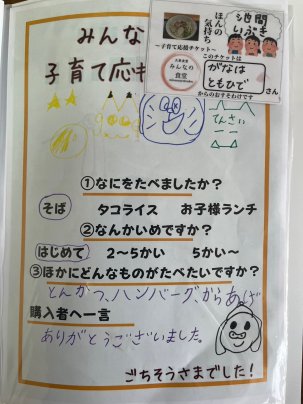 みんな
子育て応
ほんの
気持ち
～子育て応援チケット～
みんなの
食堂
池間
いぶき
このチケットは
がなは
ともひで
さん
からのおすそわけです
てんさい
①なにをたべましたか？
そば タコライス お子様ランチ
②なんかいめですか？
はじめて 2～5かい 5かい～
③ほかにどんなものがたべたいですか？
とんかつ、ハンバーグ、からあげ
購入者へ一言
ありがとうございました。
ごちそうさまでした！